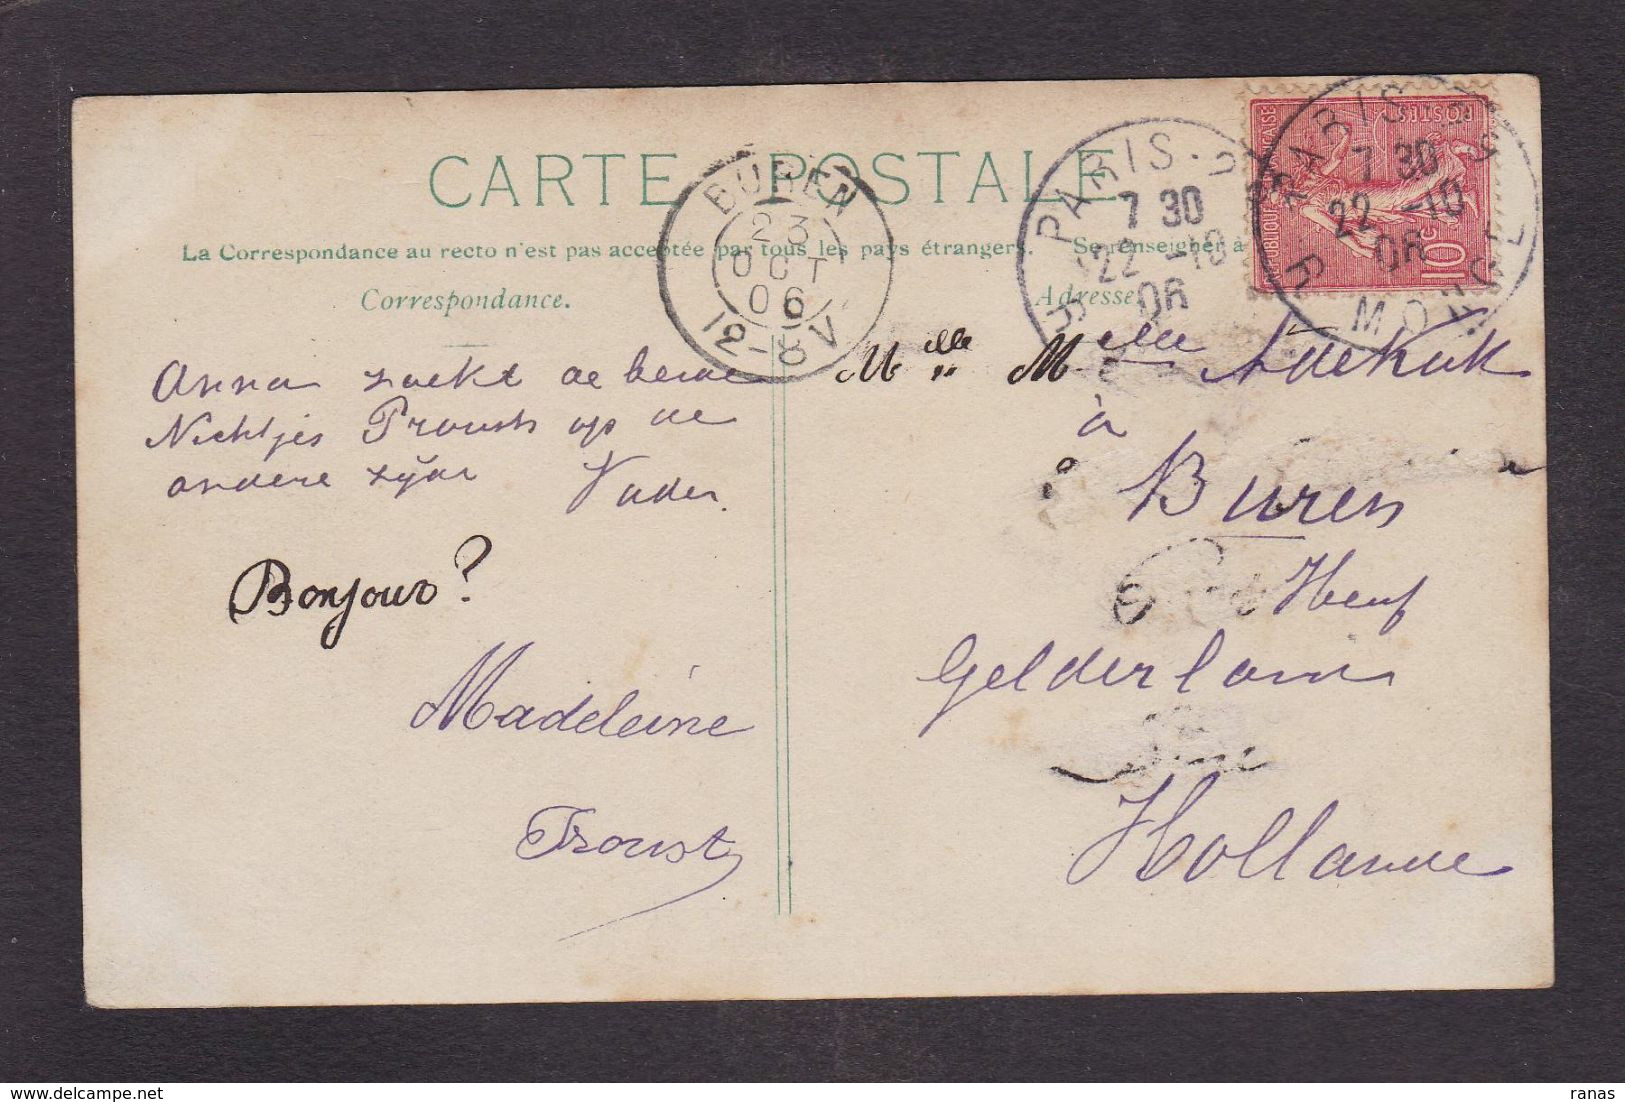 CARTE POSTALE
La Correspondance au recto n'est pas acceptée par tous les pays étrangers. Se renseigner à
Correspondance.
Adresse
BUREN
23
OCT
06
12-8V
PARIS
7 30
22 -10
06
PARIS
7 30
22 -10
06
RÉPUBLIQUE FRANÇAISE
POSTES
10c
Anna zoekt de beide
Nichtjes Proust op de
andere zijde Vader.
Bonjour?
Madeleine
Proust
Melle Melle
à
Buren
Gelderland
Hollande
ranas